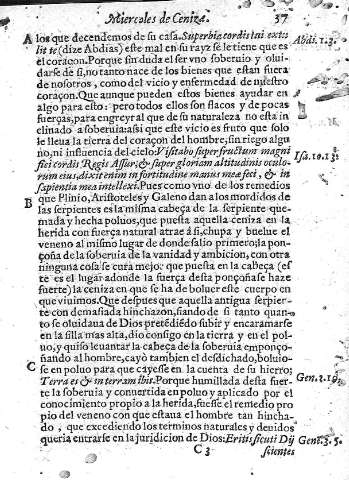 Miercoles de Ceniza. 37
A los que decendemos de su casa. Superbia cordis tui extu
lit te (dize Abdias) este mal en su rayz se le tiene que es
el coraçon. Porque sin duda el ser vno soberuio y olui
darse de si, no tanto nace de los bienes que estan fuera
de nosotros, como del vicio y enfermedad de nuestro
coraçon. Que aunque pueden estos bienes ayudar en
algo para esto: pero todos ellos son flacos y de pocas
fuerças, para engreyr al que de su naturaleza no esta in
clinado a soberuia: assi que este vicio es fruto que solo
le lleua la tierra del coraçon del hombre, sin riego algu
no, ni influencia del cielo: Visitabo super fructum magni
fici cordis Regis Assur, & super gloriam altitudinis oculo-
rum eius, dixit enim in fortitudine manus meæ feci, & in
sapientia mea intellexi. Pues como vno de los remedios
B que Plinio, Aristoteles y Galeno dan a los mordidos de
las serpientes es la misma cabeça de la serpiente que-
mada y hecha poluos, que puesta aquella ceniza en la
herida con fuerça natural atrae à si, chupa y buelue el
veneno al mismo lugar de donde salio primero; la pon-
çoña de la soberuia de la vanidad y ambicion, con otra
ninguna cosa se cura mejor que puesta en la cabeça (es
te es el lugar adonde la fuerça desta ponçoña se haze
fuerte) la ceniza en que se ha de boluer este cuerpo en
que viuimos. Que despues que aquella antigua serpien-
te con demasiada hinchazon, fiando de si tanto quan-
to se oluidaua de Dios pretēdiēdo subir y encaramarse
en la silla mas alta, dio consigo en la tierra y en el pol-
uo, y quiso leuantar la cabeça de la soberuia emponço-
ñando al hombre, cayò tambien el desdichado, boluio-
C se en poluo para que cayesse en la cuenta de su hierro;
Terra es & in terram ibis. Porque humillada desta suer-
te la soberuia y conuertida en poluo y aplicado por el
conocimiento propio a la herida, fuesse el remedio pro
pio del veneno con que estaua el hombre tan hincha-
do, que excediendo los terminos naturales y deuidos
queria entrarse en la juridicion de Dios: Eritis sicuti Dij
C 3 scientes
Abdi. 1. 3.
Isa. 10. 13.
Gen. 3. 19.
Gen. 3. 5.